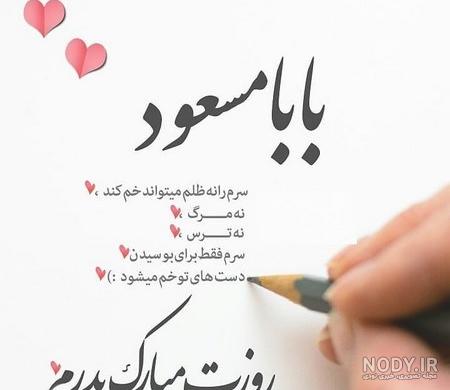 بابا مسعود
سرم را نه ظلم میتواند خم کند ،
نه مـــرگ ،
نه تـــرس ،
سرم فقط برای بوسیدن
دست های تو خم میشود :)
روزت مبارک پدرم
NODY.IR